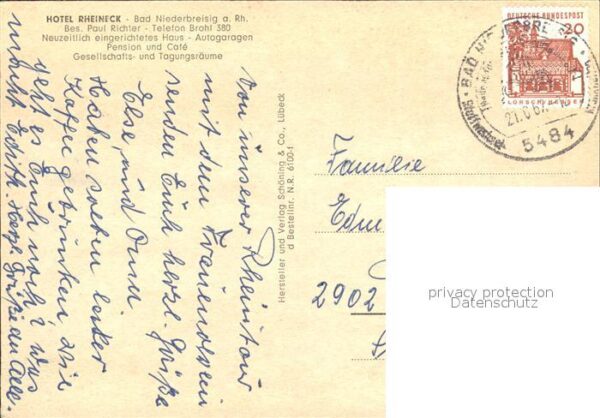 HOTEL RHEINECK - Bad Niederbreisig a. Rh.
Bes. Paul Richter - Telefon Brohl 380
Neuzeitlich eingerichtetes Haus - Autogaragen
Pension und Café
Gesellschafts- und Tagungsräume
Von unserer Rheintour
mit dem Frauenverein
senden Euch herzl. Grüße
Else, und Oma
Haben soeben lecker
Kaffee getrunken. Wie
geht es Euch noch? Was
macht Edith. Herzl. Grüße an Alle.
Hersteller und Verlag Schöning & Co., Lübeck
d Bestellnr. N.R. 6100-1
DEUTSCHE BUNDESPOST
20
LORSCH/HESSEN
BAD
5484
Familie
2902
privacy protection
Datenschutz